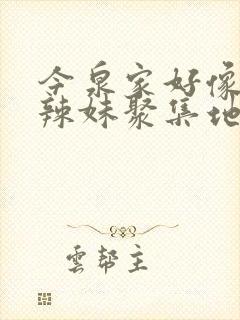 今泉家好像
辣妹聚集地
雲幫主